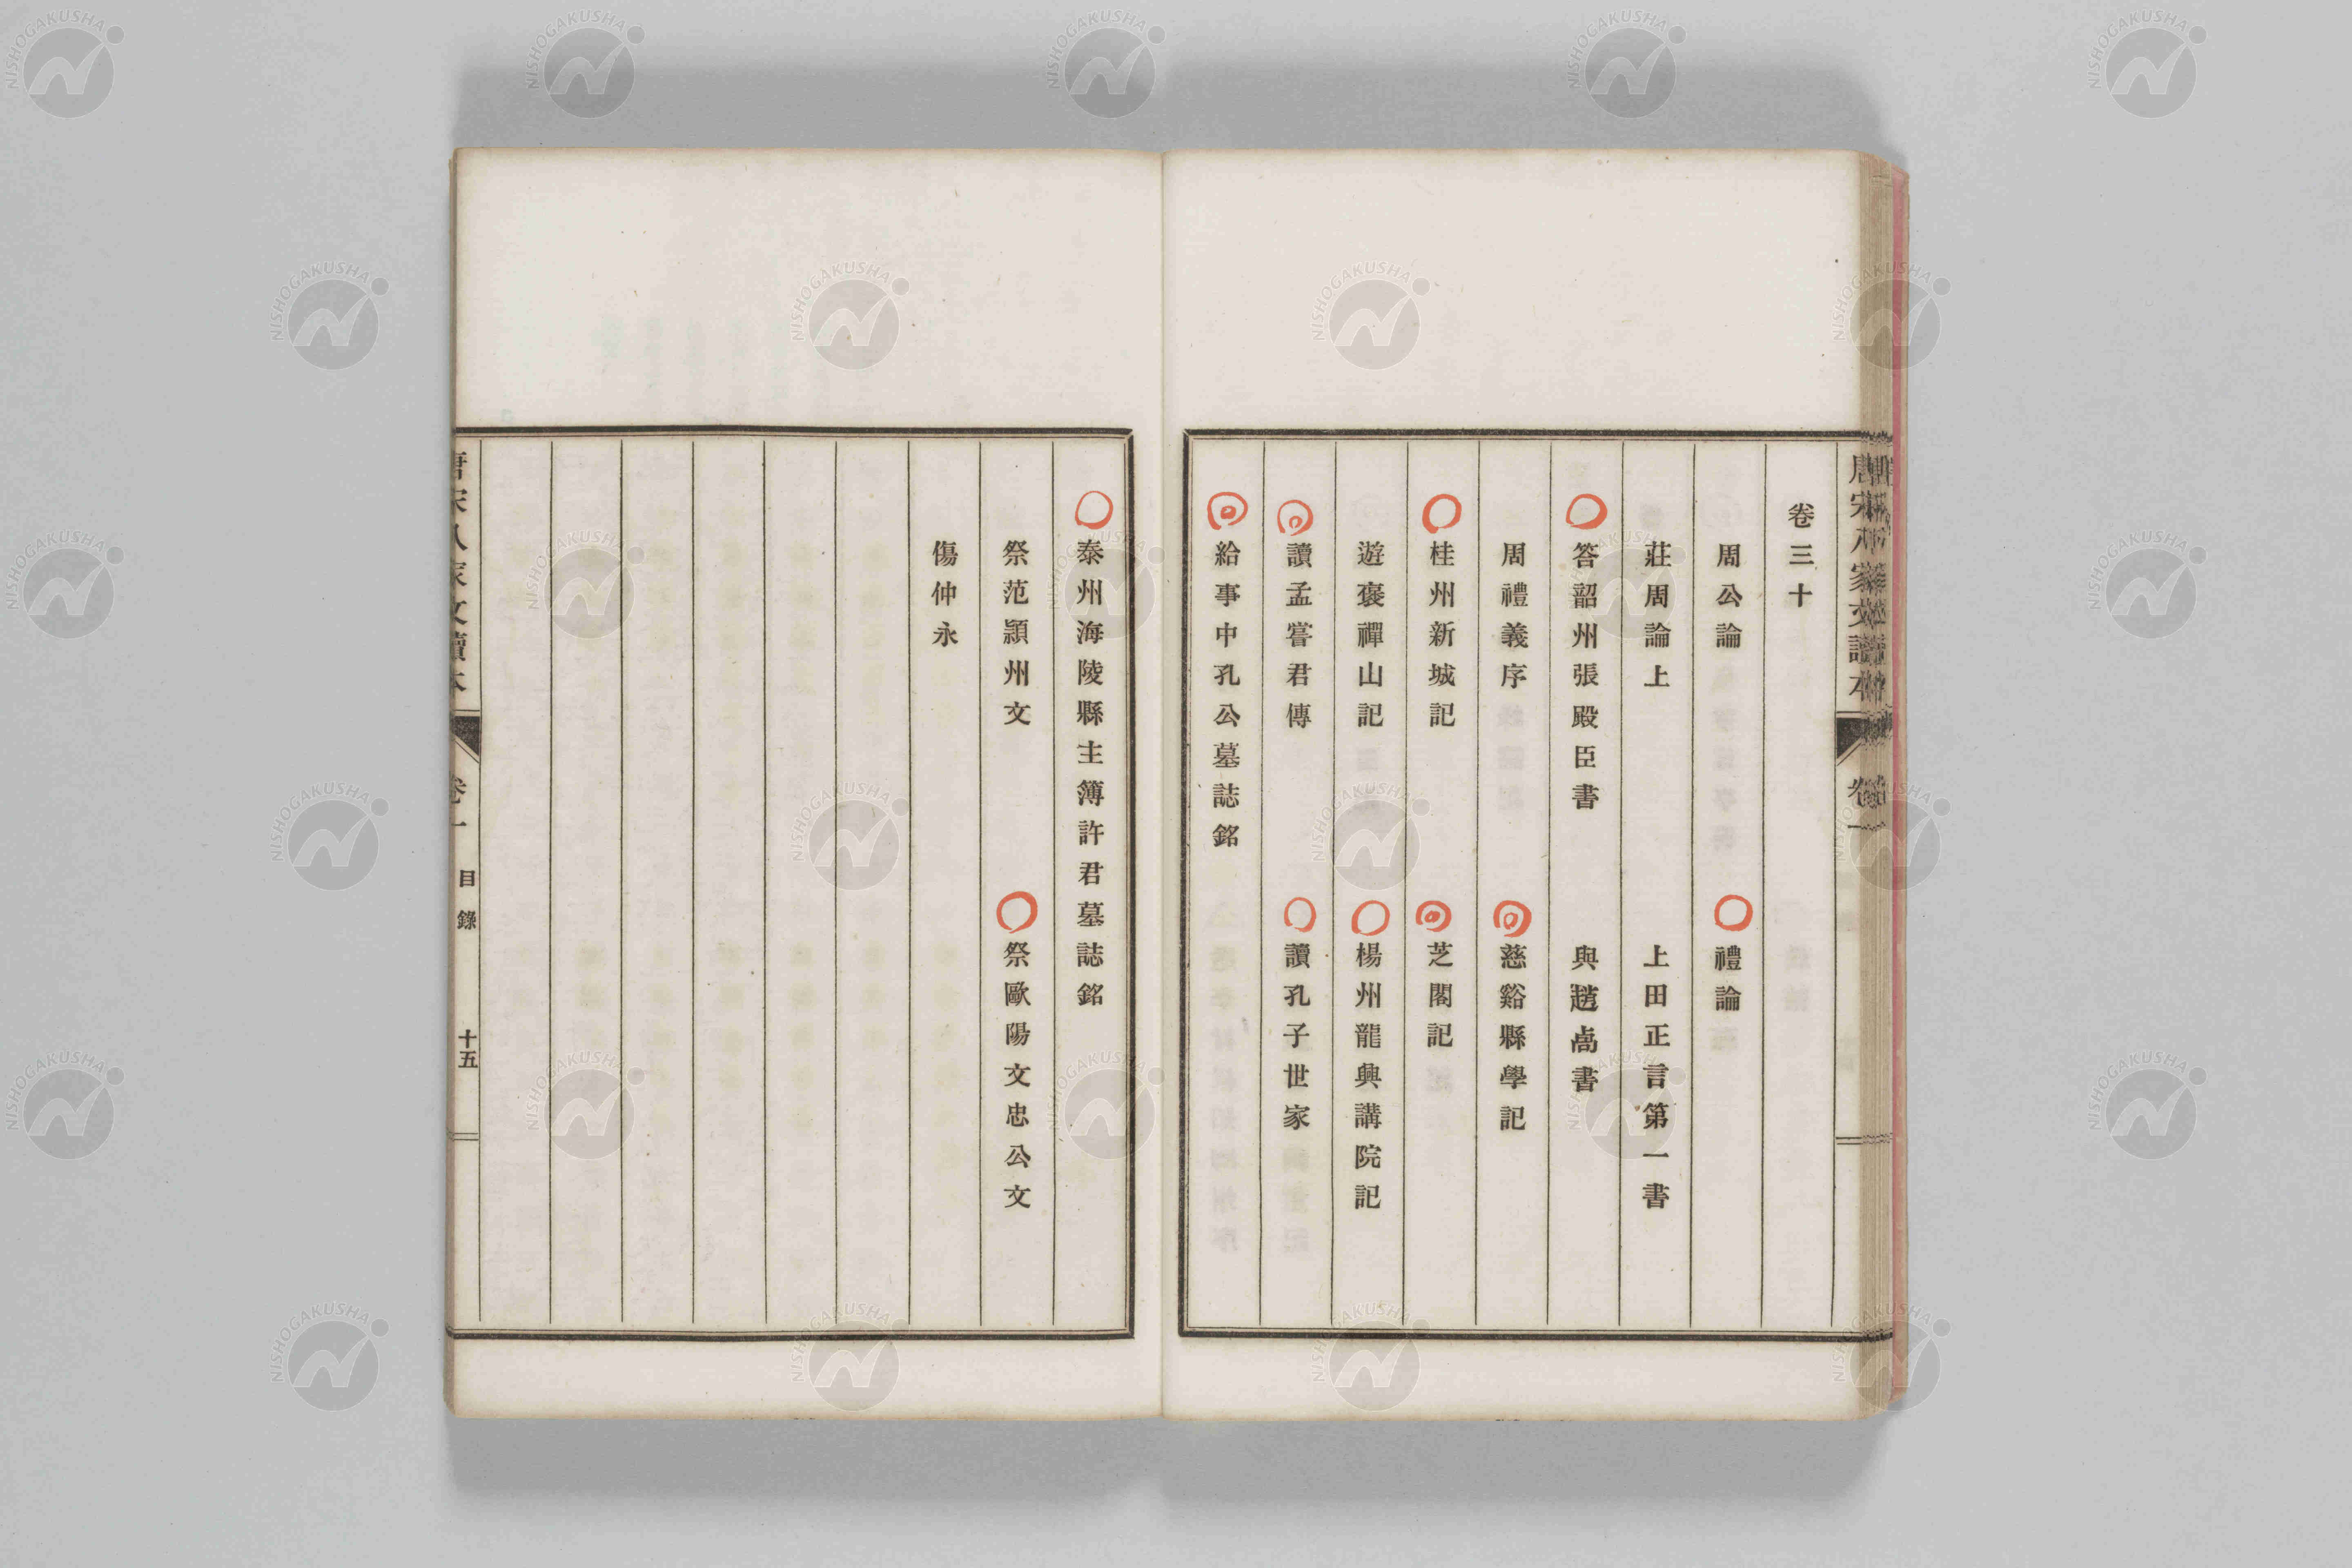 卷三十
周公論　禮論
莊周論上　上田正言第一書
答韶州張殿臣書　與趙卨書
周禮義序　慈谿縣學記
桂州新城記　芝閣記
遊褒禪山記　楊州龍興講院記
讀孟嘗君傳　讀孔子世家
給事中孔公墓誌銘
泰州海陵縣主簿許君墓誌銘
祭范潁州文　祭歐陽文忠公文
傷仲永
唐宋八家文讀本　卷一　目錄　十五
NISHOGAKUSHA